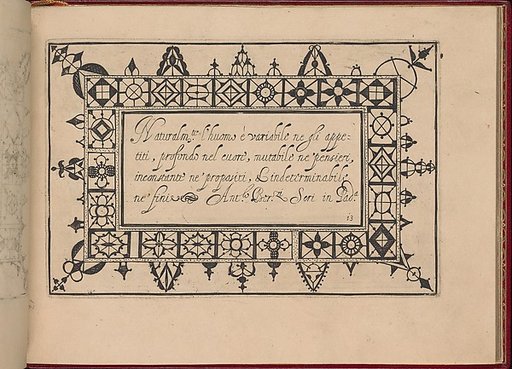 Naturalm.te l'huomo è variabile ne gli appe-
titi, profondo nel cuore, mutabile ne pensieri,
inconstante ne propositi, & indeterminabile
ne fini Ant.o Seri in Pad.a
13